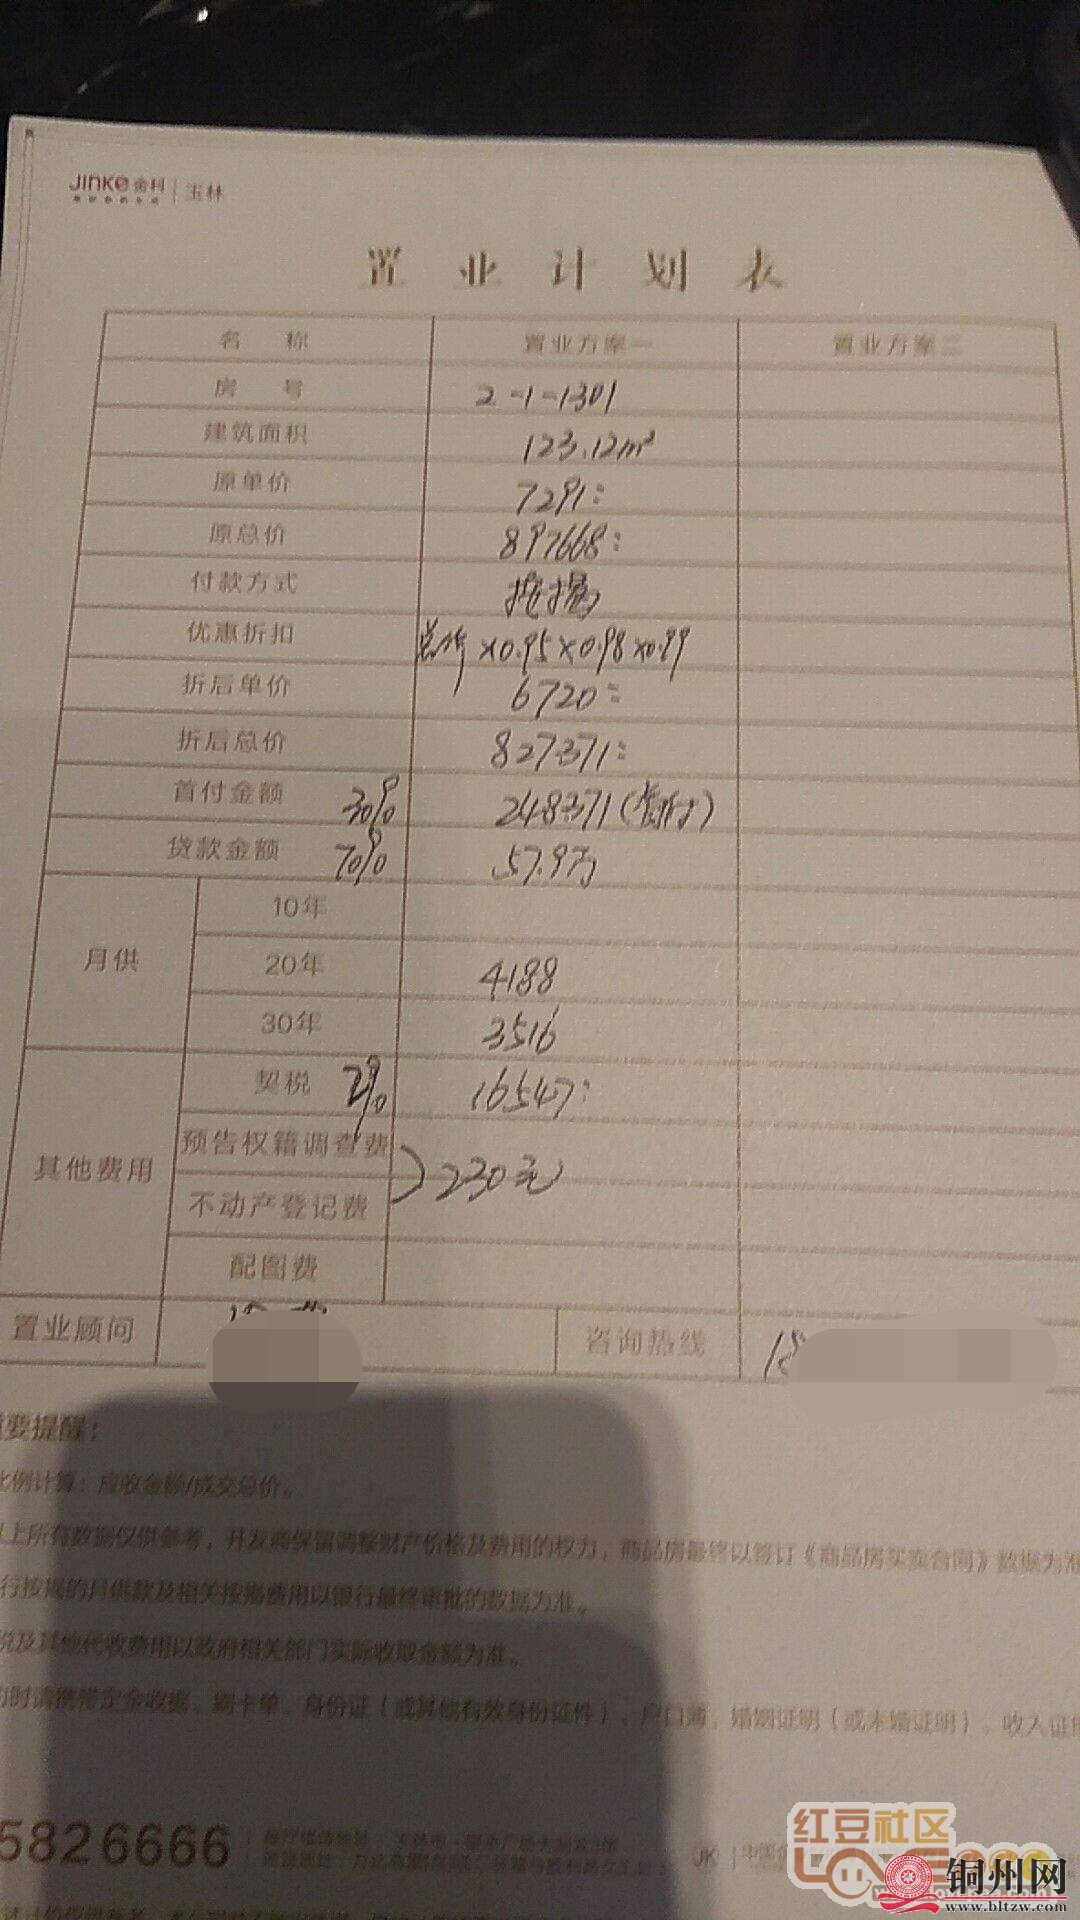 JINKE金科 | 玉林
置业计划表
名称 置业方案一 置业方案二
房号 2-1-1301
建筑面积 123.12m²
原单价 7291:
原总价 897668:
付款方式 按揭
优惠折扣 总价×0.95×0.98×0.99
折后单价 6720:
折后总价 827371:
首付金额 30% 248371(首付)
贷款金额 70% 57.9万
月供
10年
20年 4188
30年 3516
其他费用
契税 2% 16547:
预告权籍调查费
不动产登记费 230元
配图费
置业顾问 咨询热线 18
要提醒：
比例计算：应收金额/成交总价。
上所有数据仅供参考，开发商保留调整财产价格及费用的权力，商品房最终以签订《商品房买卖合同》数据为准
行按揭的月供款及相关按揭费用以银行最终审批的数据为准。
税及其他代收费用以政府相关部门实际收取金额为准。
时请携带定金收据、刷卡单、身份证（或其他有效身份证件）、户口薄、婚姻证明（或未婚证明）、收入证
5826666
JK
红豆社区
铜州网
www.bltzw.com